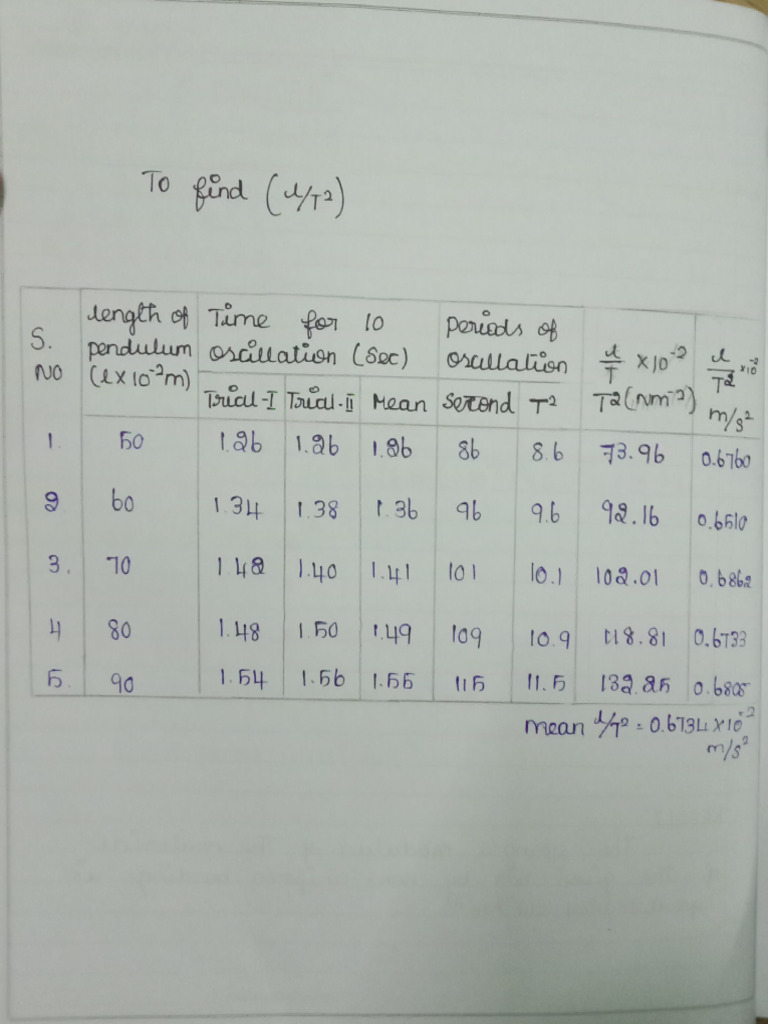 To find (l/T²)
S. NO | length of pendulum (l×10⁻²m) | Time for 10 oscillation (Sec) | Periods of oscillation | l/T ×10⁻² T²(Nm⁻²) | l/T² ×10⁻² m/s²
Trial-I | Trial-II | Mean | Second | T²
1. | 50 | 1.26 | 1.26 | 1.26 | 86 | 8.6 | 73.96 | 0.6760
2 | 60 | 1.34 | 1.38 | 1.36 | 96 | 9.6 | 92.16 | 0.6510
3. | 70 | 1.42 | 1.40 | 1.41 | 101 | 10.1 | 102.01 | 0.6862
4 | 80 | 1.48 | 1.50 | 1.49 | 109 | 10.9 | 118.81 | 0.6733
5. | 90 | 1.54 | 1.56 | 1.55 | 115 | 11.5 | 132.25 | 0.6805
mean l/T² = 0.6734 ×10⁻²
m/s²